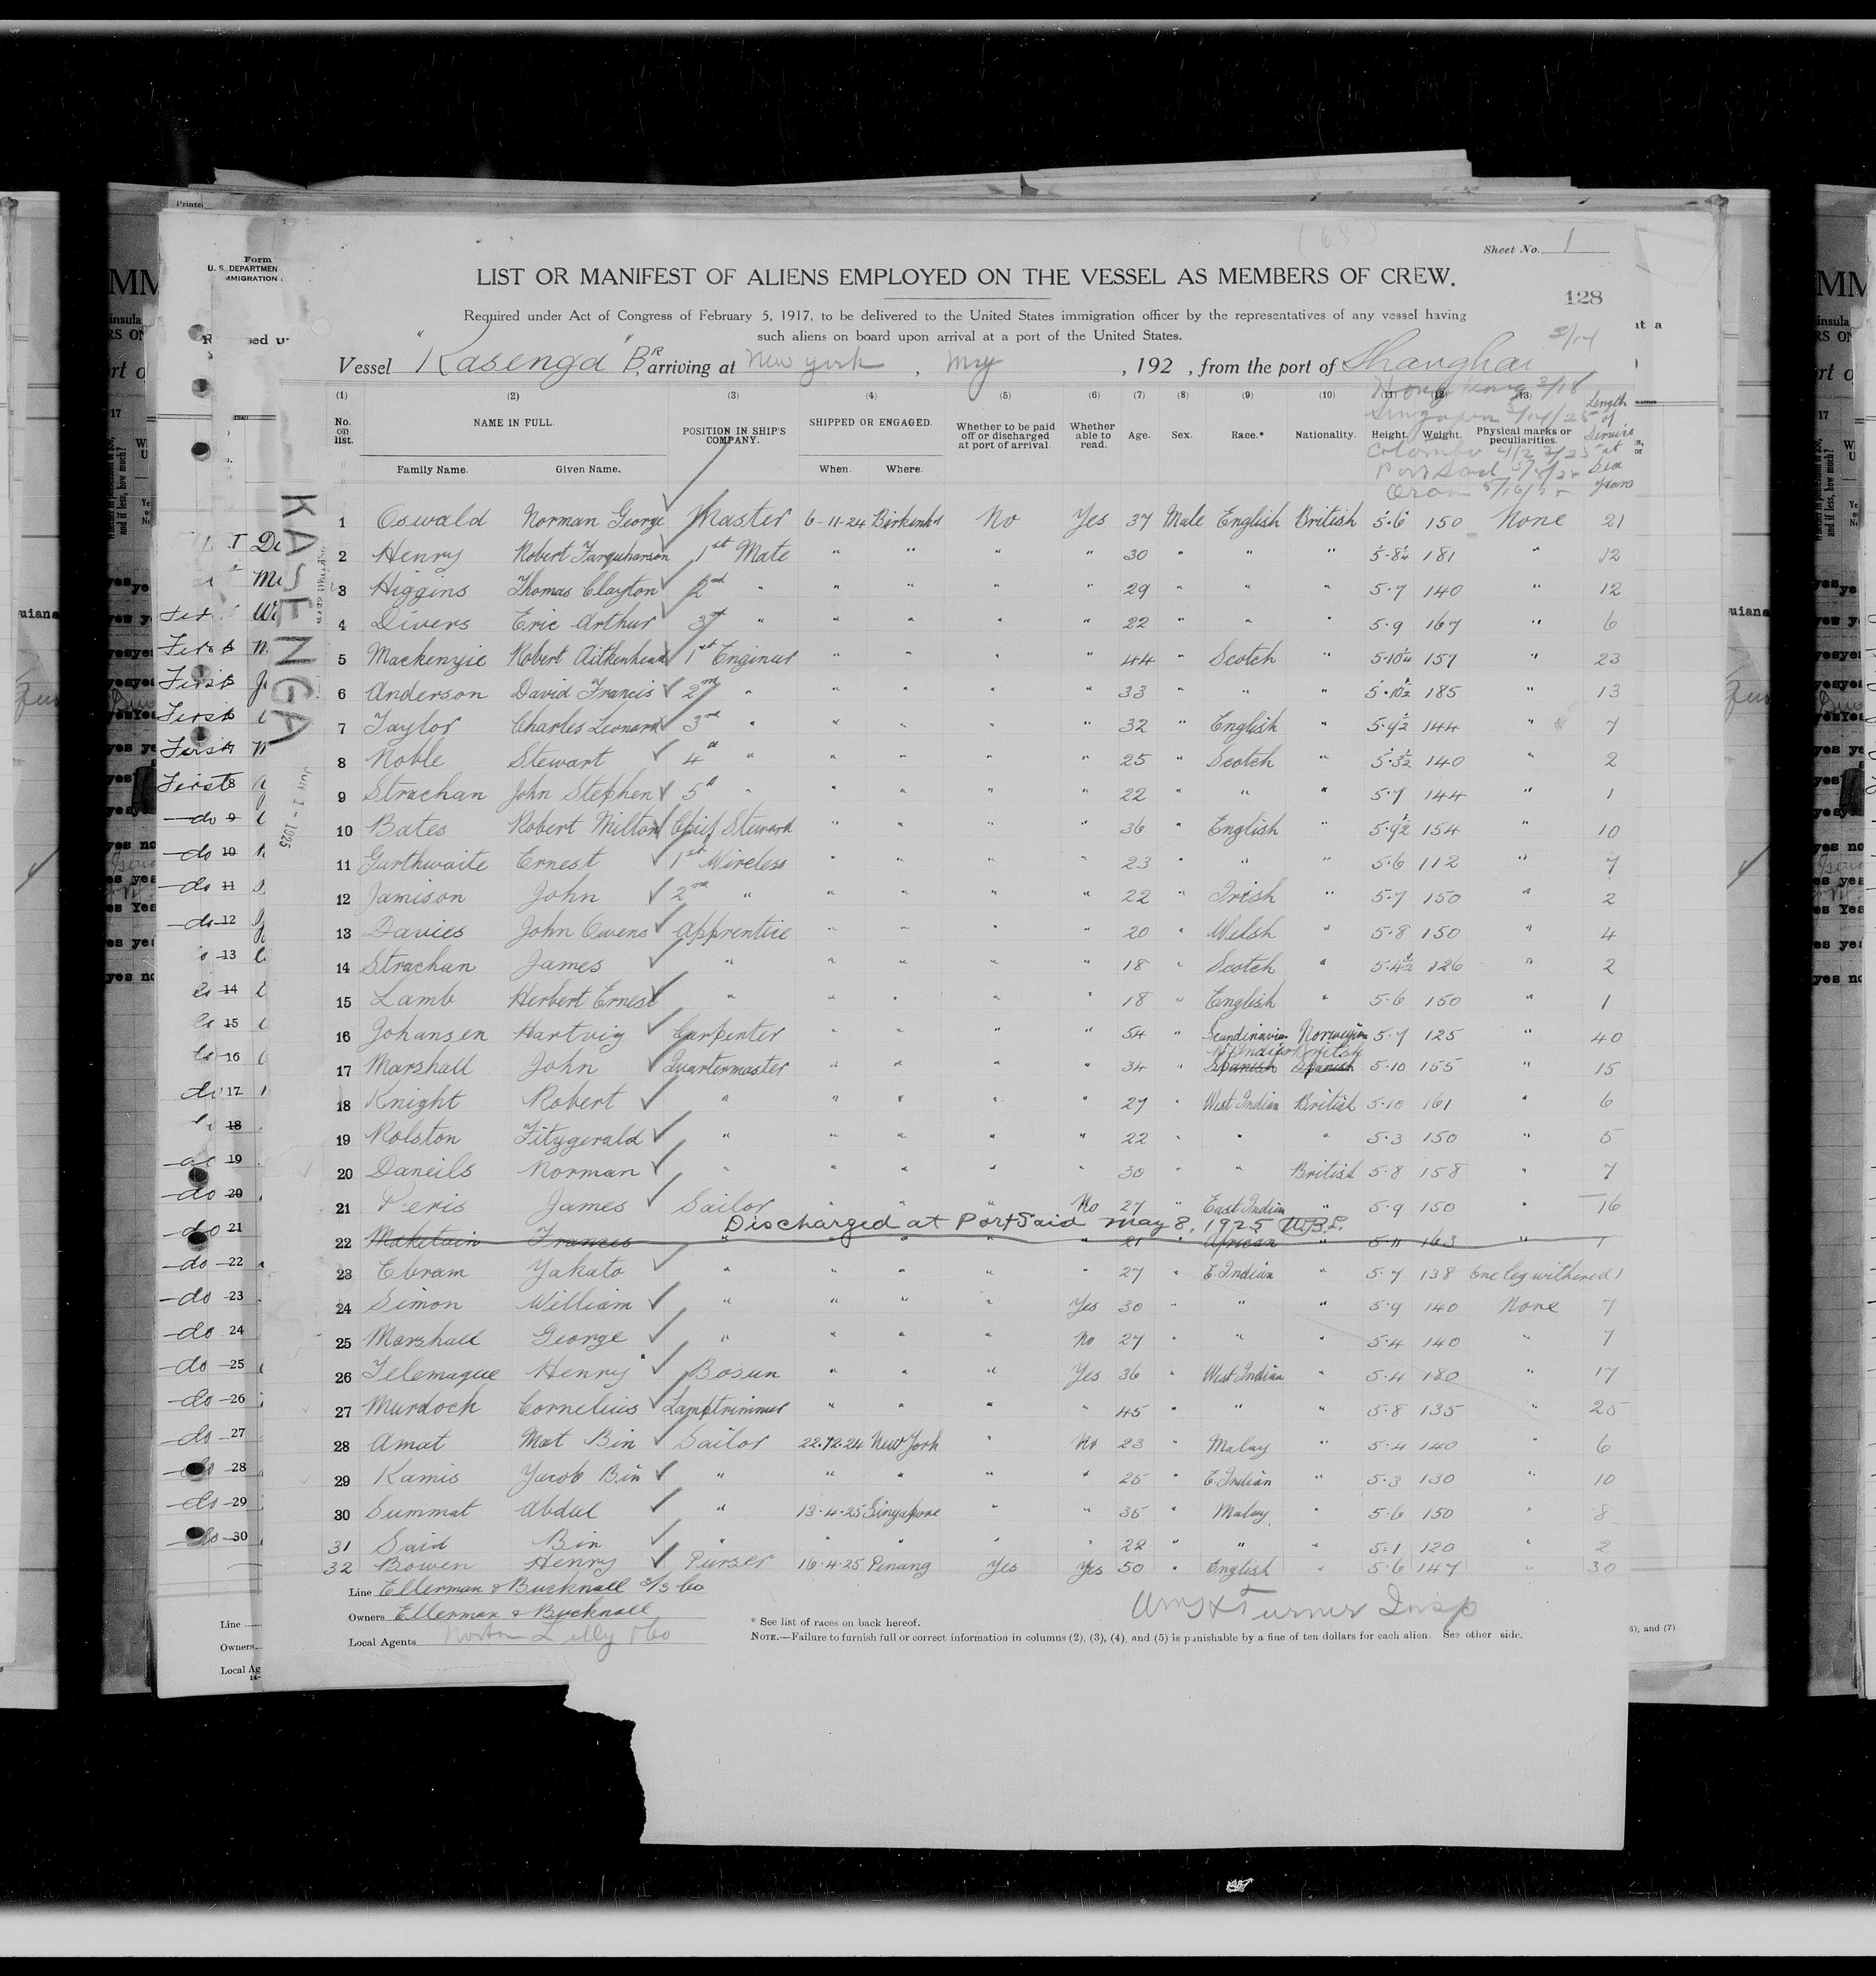 Sheet No. 1
LIST OR MANIFEST OF ALIENS EMPLOYED ON THE VESSEL AS MEMBERS OF CREW.
128
Required under Act of Congress of February 5, 1917, to be delivered to the United States immigration officer by the representatives of any vessel having
such aliens on board upon arrival at a port of the United States.
Vessel "Kasenga" Br, arriving at New York, May, 192 , from the port of Shanghai 3/14
Hong Kong 3/18
Singapore
Colombo
Port Said
Oran
Length of Service at Sea years
(1) (2) (3) (4) (5) (6) (7) (8) (9) (10) (11) (12) (13)
No. on list. NAME IN FULL. POSITION IN SHIP'S COMPANY. SHIPPED OR ENGAGED. Whether to be paid off or discharged at port of arrival Whether able to read. Age. Sex. Race.* Nationality. Height. Weight. Physical marks or peculiarities.
Family Name. Given Name. When. Where.
1 Oswald Norman George Master 6-11-24 Birkenhd No Yes 37 Male English British 5·6 150 None 21
2 Henry Robert Farquharson 1st Mate " " " " 30 " " " 5-8¼ 181 " 12
3 Higgins Thomas Clayton 2nd " " " " " 29 " " " 5·7 140 " 12
4 Divers Eric Arthur 3rd " " " " " 22 " " " 5·9 167 " 6
5 Mackenzie Robert Aitkenhead 1st Engineer " " " " 44 " Scotch " 5·10¼ 157 " 23
6 Anderson David Francis 2nd " " " " " 33 " " " 5·10½ 185 " 13
7 Taylor Charles Leonard 3rd " " " " " 32 " English " 5·9½ 144 " 7
8 Noble Stewart 4th " " " " " 25 " Scotch " 5·3½ 140 " 2
9 Strachan John Stephen 5th " " " " " 22 " " " 5·7 144 " 1
10 Bates Robert Milton Chief Steward " " " " 36 " English " 5·9½ 154 " 10
11 Gurthwaite Ernest 1st Wireless " " " " 23 " " " 5·6 112 " 7
12 Jamison John 2nd " " " " " 22 " Irish " 5·7 150 " 2
13 Davies John Owens Apprentice " " " " 20 " Welsh " 5·8 150 " 4
14 Strachan James " " " " " 18 " Scotch " 5·4½ 126 " 2
15 Lamb Herbert Ernest " " " " " 18 " English " 5·6 150 " 1
16 Johansen Hartvig Carpenter " " " " 54 " Scandinavian Norwegian 5·7 125 " 40
W. Indies British
17 Marshall John Quartermaster " " " " 34 " Spanish Spanish 5·10 155 " 15
18 Knight Robert " " " " " 27 " West Indian British 5·10 161 " 6
19 Rolston Fitzgerald " " " " " 22 " " " 5·3 150 " 5
20 Daneils Norman " " " " " 30 " " British 5·8 158 " 7
21 Peris James Sailor " " " No 27 " East Indian " 5·9 150 " 16
Discharged at Port Said May 8, 1925 W.B.L.
22 Maketain Frances " " " " " 21 " African " 5·11 163 " 1
23 Ebram Yakato " " " " " 27 " E. Indian " 5·7 138 One leg withered 1
24 Simon William " " " " Yes 30 " " " 5·9 140 None 7
25 Marshall George " " " " No 27 " " " 5·4 140 " 7
26 Telemaque Henry Bosun " " " Yes 36 " West Indian " 5·4 180 " 17
27 Murdoch Cornelius Lamptrimmer " " " " 45 " " " 5·8 135 " 25
28 Amat Mat Bin Sailor 22·12·24 New York " No 23 " Malay " 5·4 140 " 6
29 Kamis Yacob Bin " " " " " 25 " E. Indian " 5·3 130 " 10
30 Summat Abdul " 13·4·25 Singapore " " 35 " Malay " 5·6 150 " 8
31 Said Bin " " " " " 22 " " " 5·1 120 " 2
32 Bowen Henry Purser 16·4·25 Penang Yes Yes 50 " English " 5·6 147 " 30
Line Ellerman & Bucknall S/S Co
Owners Ellerman & Bucknall
Local Agents Norton Lilly & Co
Wm H Turner Insp
* See list of races on back hereof.
NOTE.—Failure to furnish full or correct information in columns (2), (3), (4), and (5) is punishable by a fine of ten dollars for each alien. See other side.
KASENGA
JUN 1 - 1925
Form
U. S. DEPARTMEN
IMMIGRATION
Line
Owners
Local Ag
6), and (7)